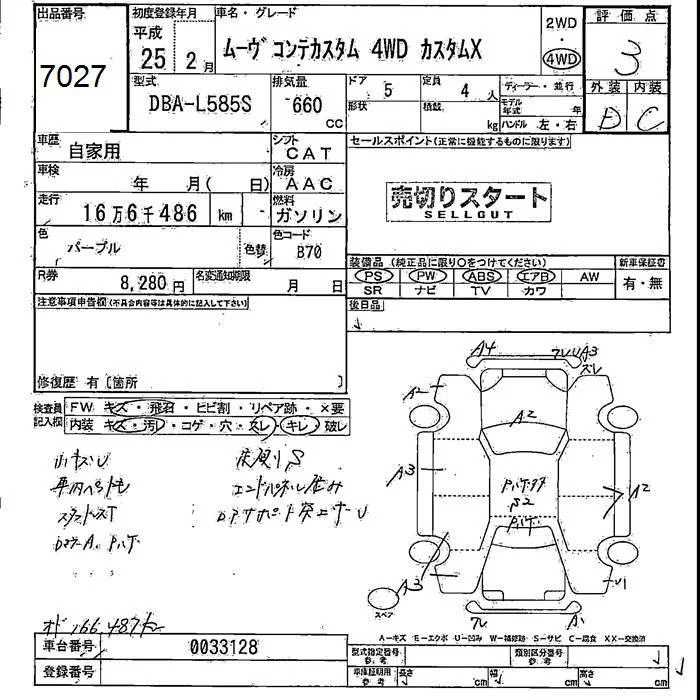 出品番号
7027
初度登録年月
平成
25 2月
車名・グレード
ムーヴ コンテカスタム 4WD カスタムX
2WD
・
4WD
評価点
3
外装 内装
D C
型式
DBA-L585S
排気量
660 CC
ドア
5
形状
定員
4 人
積載
kg
ディーラー・並行
モデル年式 年
ハンドル 左・右
車歴
自家用
シフト
CAT
車検
年 月( 日)
冷房
AAC
走行
16万6千486 km -
燃料
ガソリン
色
パープル
色替
色コード
B70
R券
8,280円
名変通知期限
月 日
セールスポイント(正常に機能するものに限ります)
売切りスタート
SELLCUT
装備品 (純正品に限り○をつけてください)
新車保証書
PS PW ABS エアB AW
SR ナビ TV カワ
有・無
後日品
注意事項申告欄(不具合内容等は具体的に記入して下さい)
修復歴 有〔箇所 〕
検査員記入欄
FW キズ・飛石・ヒビ割・リペア跡・×要
内装 キズ・汚レ・コゲ・穴・スレ・キレ・破レ
A4
A3
スレ
A2
A2
A3
A2
S2
A3
U1
スペア
A1
A-キズ E-エクボ U-凹み W-補修跡 S-サビ C-腐食 XX-交換済
車台番号
0033128
登録番号
型式指定番号
参考
類別区分番号
参考
車庫証明用
参考
長さ cm
幅 cm
高さ cm